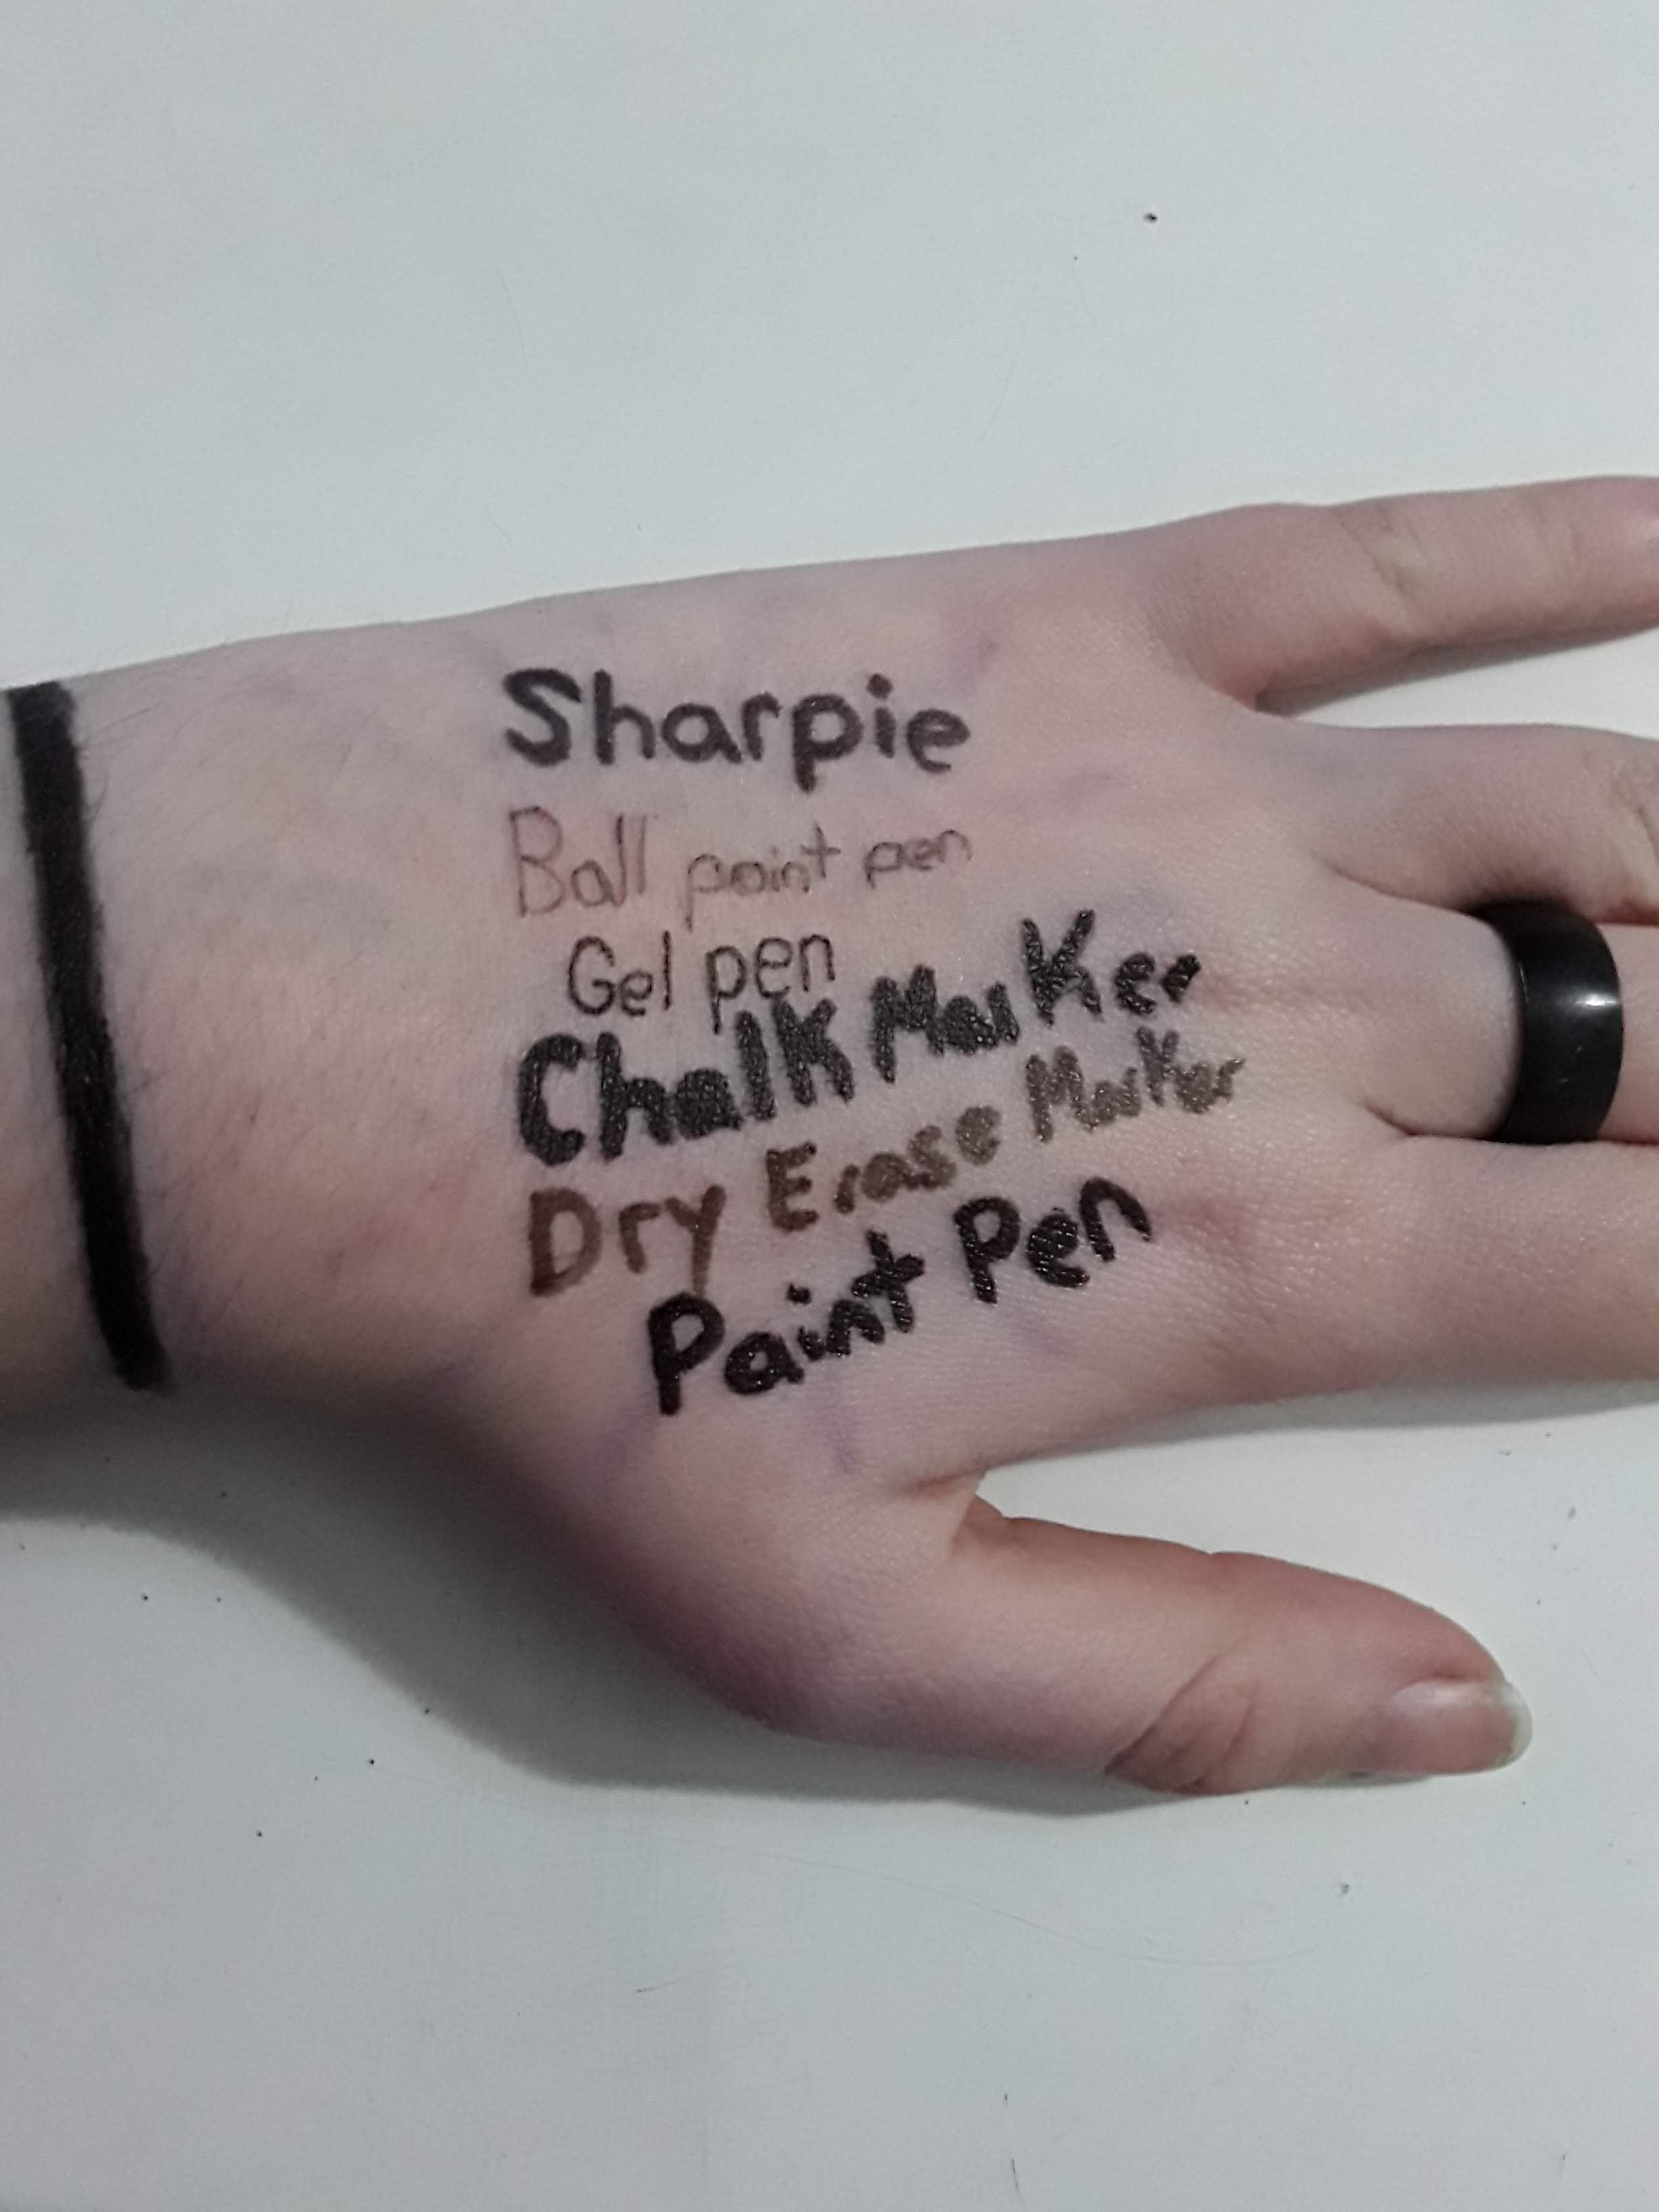 Sharpie
Ball point pen
Gel pen
Chalk Marker
Dry Erase Marker
Paint Pen